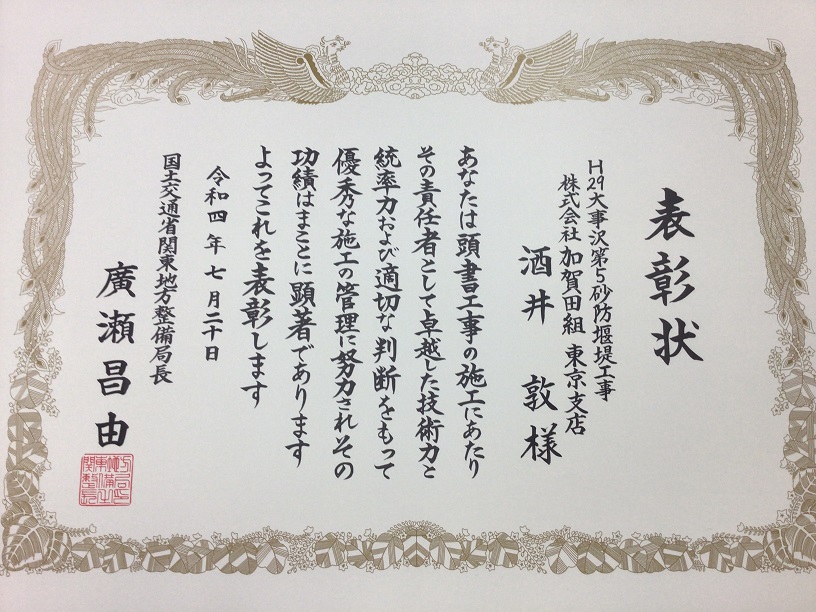 表彰状
H29大事沢第5砂防堰堤工事
株式会社 加賀田組 東京支店
酒井 敦 様
あなたは頭書工事の施工にあたり
その責任者として卓越した技術力と
統率力および適切な判断をもって
優秀な施工の管理に努力されその
功績はまことに顕著であります
よってこれを表彰します
令和四年七月二十日
国土交通省関東地方整備局長
廣瀬昌由